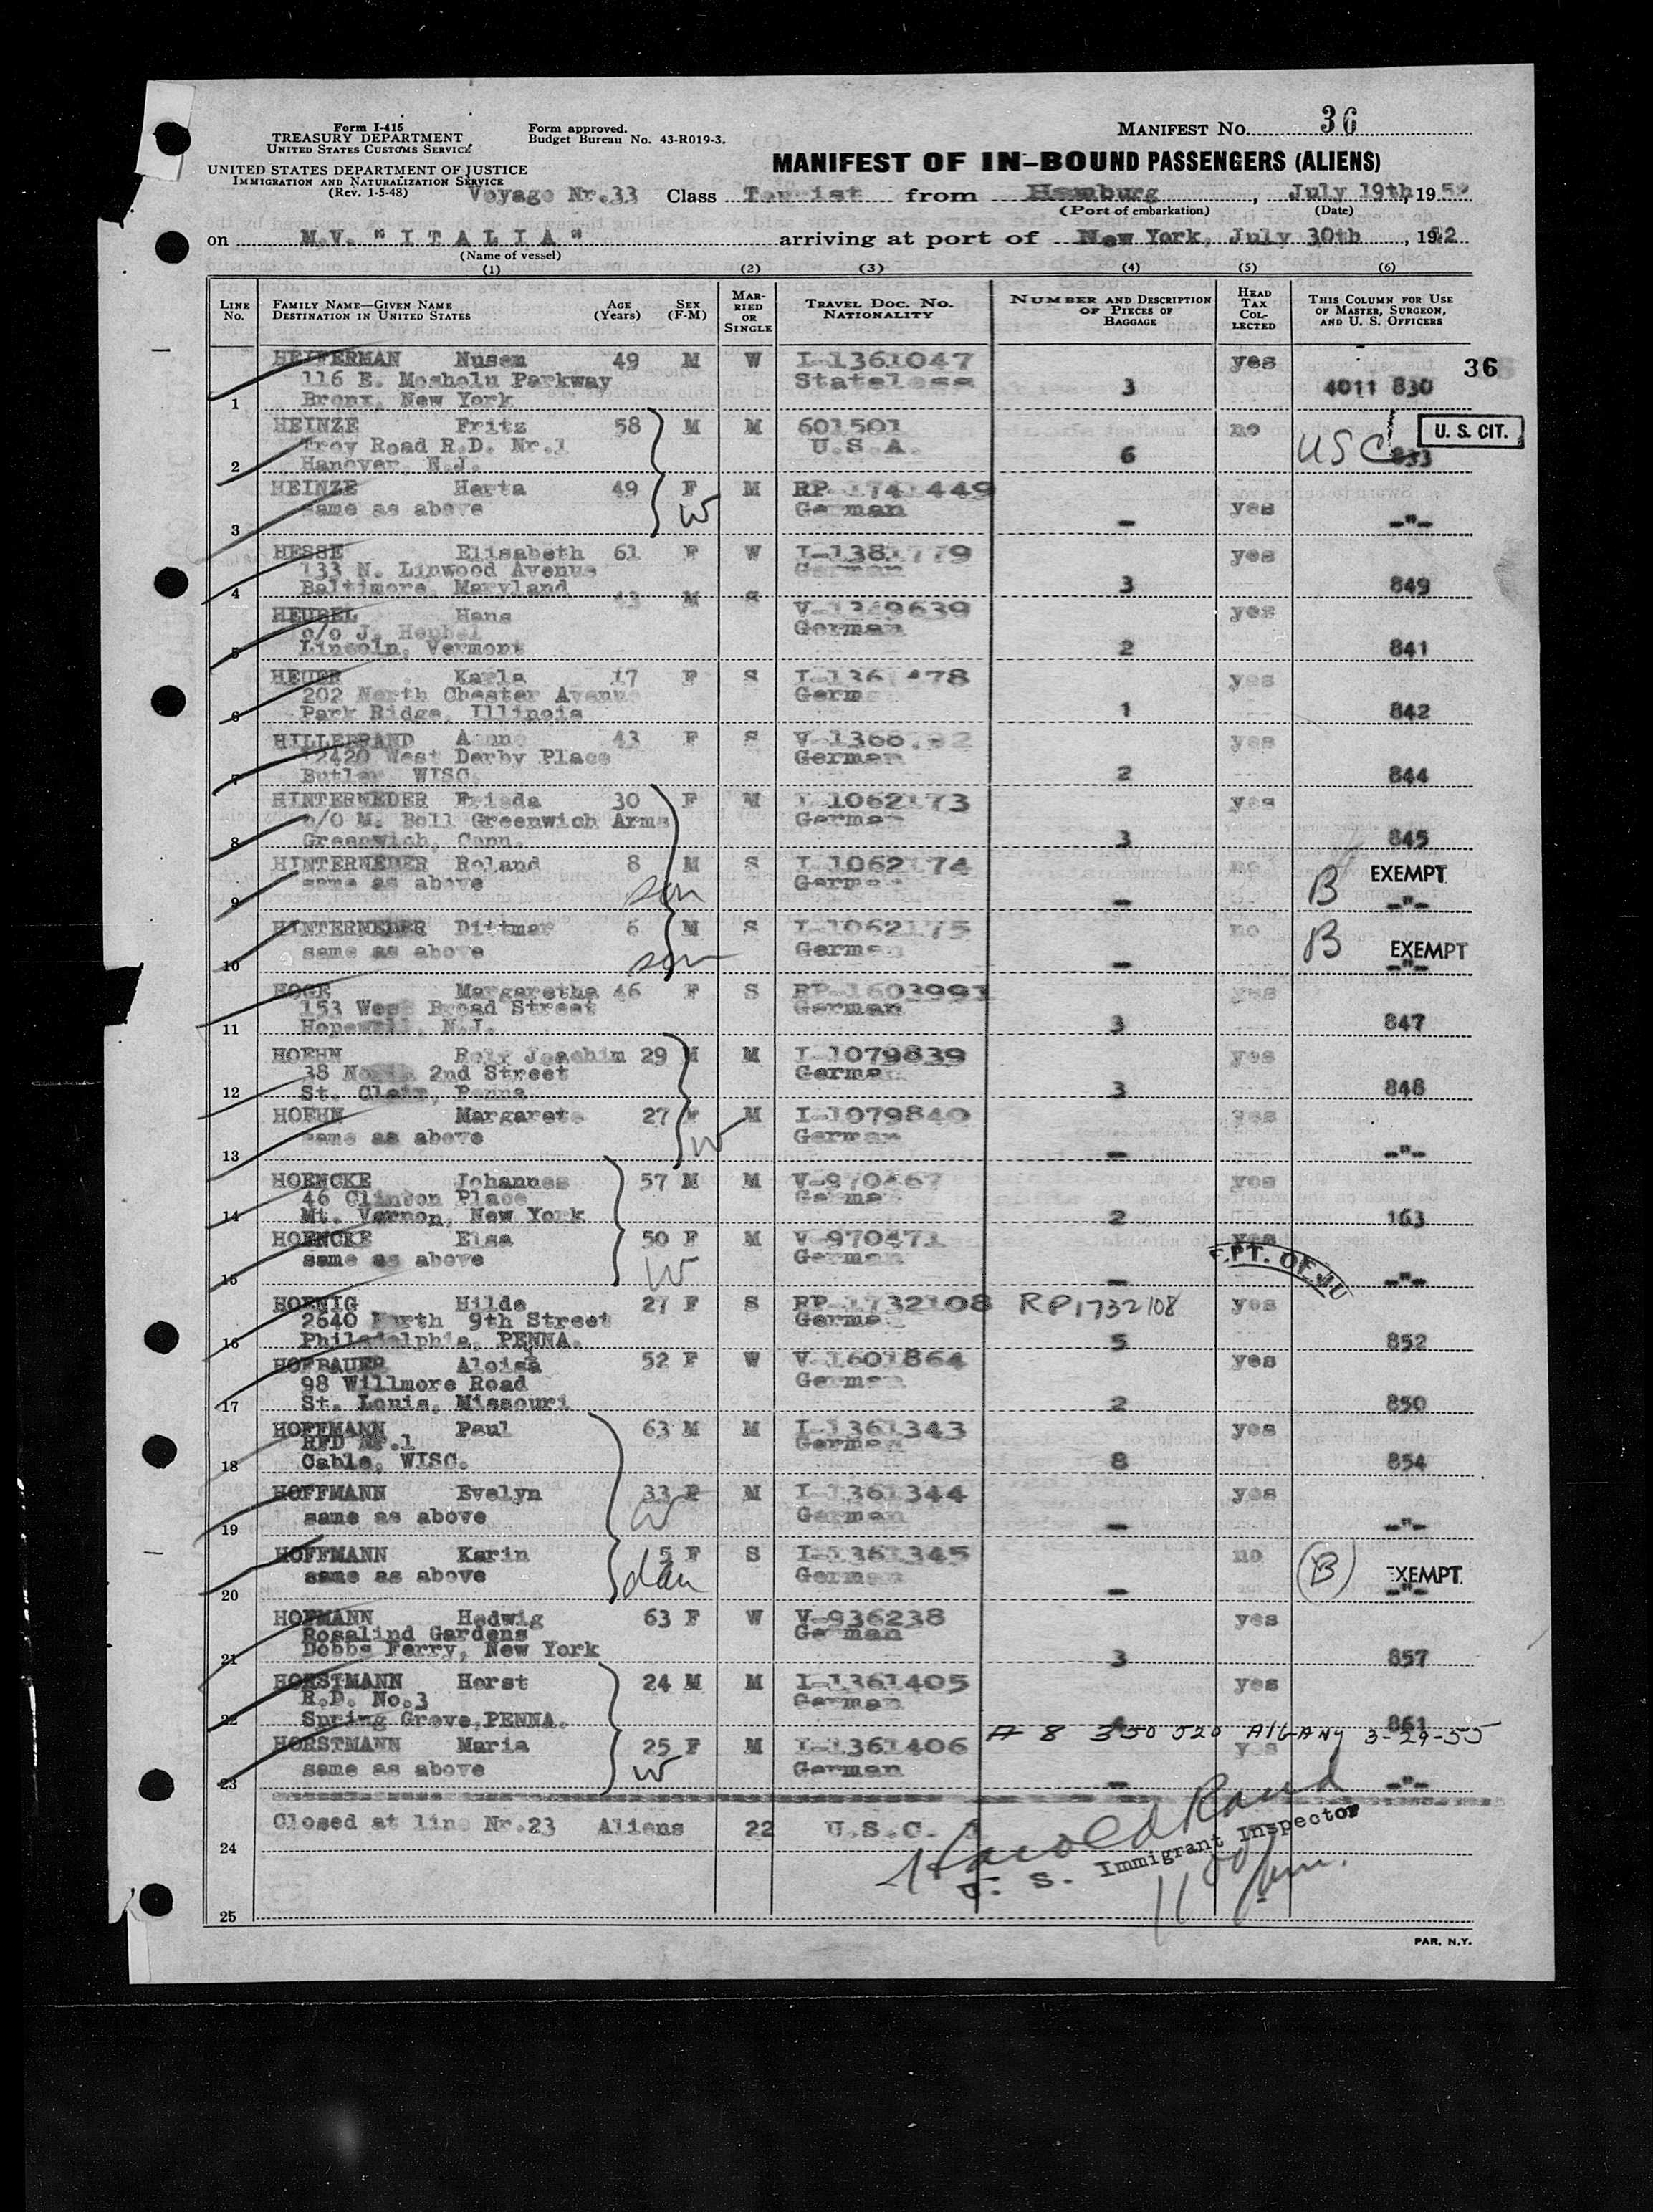 Form I-415
TREASURY DEPARTMENT
UNITED STATES CUSTOMS SERVICE
UNITED STATES DEPARTMENT OF JUSTICE
IMMIGRATION AND NATURALIZATION SERVICE
(Rev. 1-5-48)
Form approved.
Budget Bureau No. 43-R019-3.
MANIFEST NO. 36
MANIFEST OF IN-BOUND PASSENGERS (ALIENS)
Voyage Nr.33 Class Tourist from Hamburg, July 19th, 1952
(Port of embarkation) (Date)
on M.V. "ITALIA" arriving at port of New York, July 30th, 1952
(Name of vessel)
(1) (2) (3) (4) (5) (6)
LINE No. FAMILY NAME—GIVEN NAME DESTINATION IN UNITED STATES AGE (Years) SEX (F-M) MARRIED OR SINGLE TRAVEL DOC. NO. NATIONALITY NUMBER AND DESCRIPTION OF PIECES OF BAGGAGE HEAD TAX COLLECTED THIS COLUMN FOR USE OF MASTER, SURGEON, AND U. S. OFFICERS
HEIFERMAN Nusem 49 M W I-1361047 yes 36
116 E. Mosholu Parkway Stateless 3 4011 830
1 Bronx, New York
HEINZE Fritz 58 M M 601501 no U. S. CIT.
Troy Road R.D. Nr.1 U.S.A. 6 USC 833
2 Hanover, N.J.
HEINZE Herta 49 F M RP-1741449
same as above W German yes
3 - -"-
HESSE Elisabeth 61 F W I-1381779 yes
133 N. Linwood Avenue German
4 Baltimore, Maryland 3 849
HEUBEL Hans 43 M S V-1349639 yes
c/o J. Heubel German
5 Lincoln, Vermont 2 841
HEUER Karla 17 F S yes
202 North Chester Avenue
6 Park Ridge, Illinois 1 842
HILLEBRAND 43 F S yes
West Derby Place German
7 Butler WISC. 2 844
HINTERNEDER Frieda 30 F M I-1062173 yes
c/o M. Boll Greenwich Arms German
8 Greenwich, Conn. 3 845
HINTERNEDER Roland 8 M S I-1062174 no EXEMPT
same as above son German B
9 - -"-
HINTERNEDER Dittmar 6 M S I-1062175 no
same as above son German B EXEMPT
10 - -"-
HOGE Margaretha 46 F S RP-1603991 yes
153 West Broad Street German
11 Hopewell, N.J. 3 847
HOEHN Rolf Joachim 29 M M I-1079839 yes
38 North 2nd Street German
12 St. Clair, Penna. 3 848
HOEHN Margarete 27 F M I-1079840 yes
same as above W German
13 - -"-
HOENCKE Johannes 57 M M V-970467 yes
46 Clinton Place German
14 Mt. Vernon, New York 2 163
HOENCKE Elsa 50 F M V-970471 yes
same as above W German
15 - -"-
HOENIG Hilde 27 F S RP-1732108 RP1732108 yes
2640 North 9th Street German
16 Philadelphia, PENNA. 5 852
HOFBAUER Aloisa 52 F W V-1601864 yes
98 Willmore Road German
17 St. Louis, Missouri 2 850
HOFFMANN Paul 63 M M I-1361343 yes
RFD Nr.1 German
18 Cable, WISC. 8 854
HOFFMANN Evelyn 33 F M I-1361344 yes
same as above W German
19 - -"-
HOFFMANN Karin 5 F S I-1361345 no B EXEMPT
same as above dau German
20 - -"-
HOFMANN Hedwig 63 F W V-936238 yes
Rosalind Gardens German
21 Dobbs Ferry, New York 3 857
HORSTMANN Horst 24 M M I-1361405 yes
R.D. No.3 German
22 Spring Grove, PENNA. 861
A 8 350 520 ALBANY 3-29-55
HORSTMANN Maria 25 F M I-1361406 yes
same as above W German
23 - -"-
Closed at line Nr.23 Aliens 22 U.S.C.
24
Harold Rand
U. S. Immigrant Inspector
25
PAR. N.Y.